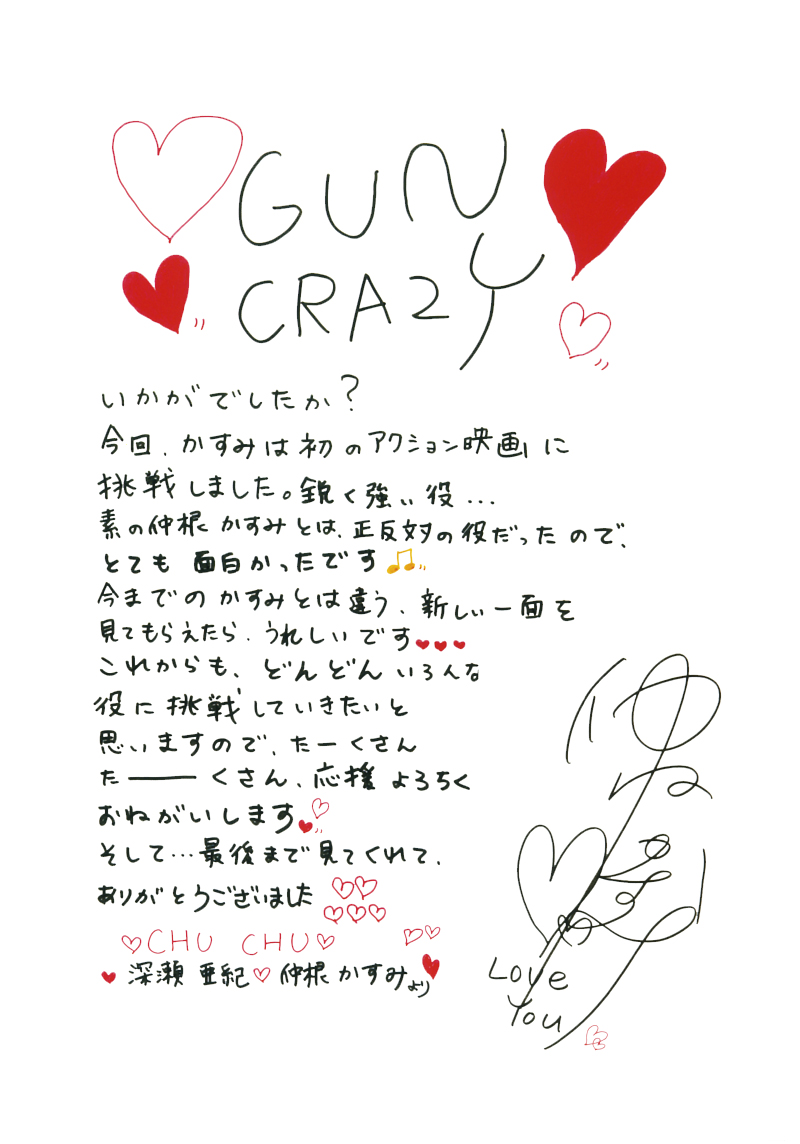 GUN
CRAZY
いかがでしたか?
今回、かすみは初のアクション映画に
挑戦しました。鋭く強い役…
素の仲根かすみとは、正反対の役だったので、
とても面白かったです♫
今までのかすみとは違う、新しい一面を
見てもらえたら、うれしいです♥♥♥
これからも、どんどんいろんな
役に挑戦していきたいと
思いますので、たーくさん
たーーくさん、応援よろちく
おねがいします♥♡
そして…最後まで見てくれて、
ありがとうございました♡♡♡♡♡
♡CHU CHU♡ ♡♡
♥深瀬 亜紀♡仲根かすみより♥
Love
You